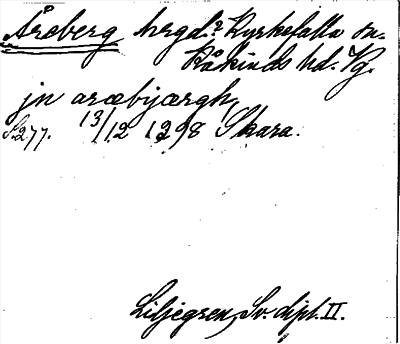 Åreberg hrgd.? Kyrkefalla sn.
Kåkinds hd. Vg.
jn aræbjærgh,
S.277. 13/12 1298 Skara.
Liljegren, Sv. dipl. II.